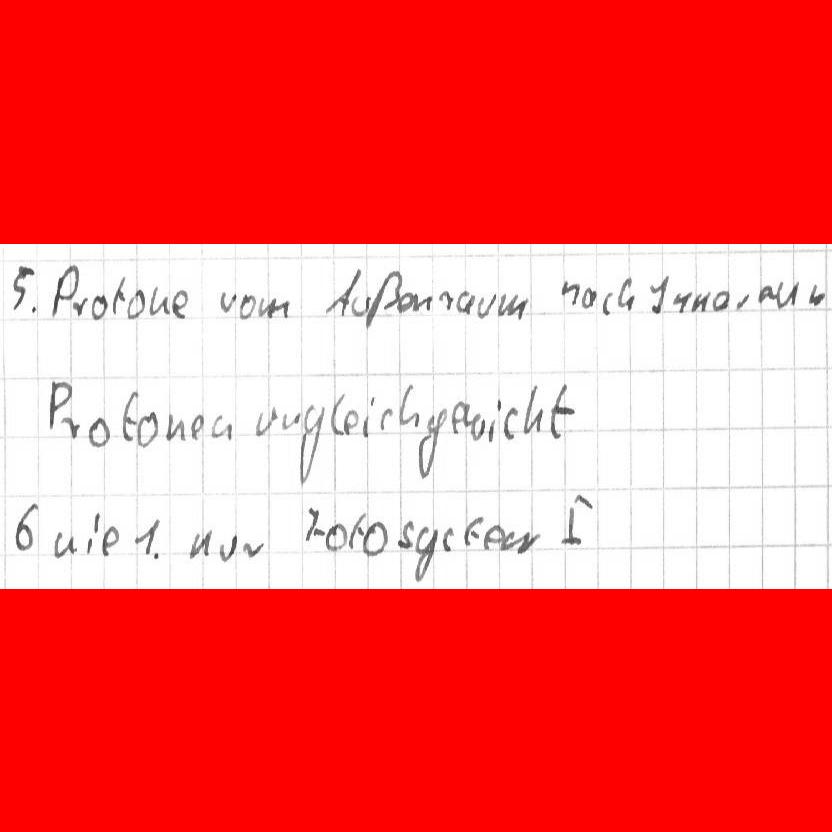 5. Protone vom Außenraum nach Innenraum
Protonen ungleichgewicht
6 wie 1. nur Fotosystem I